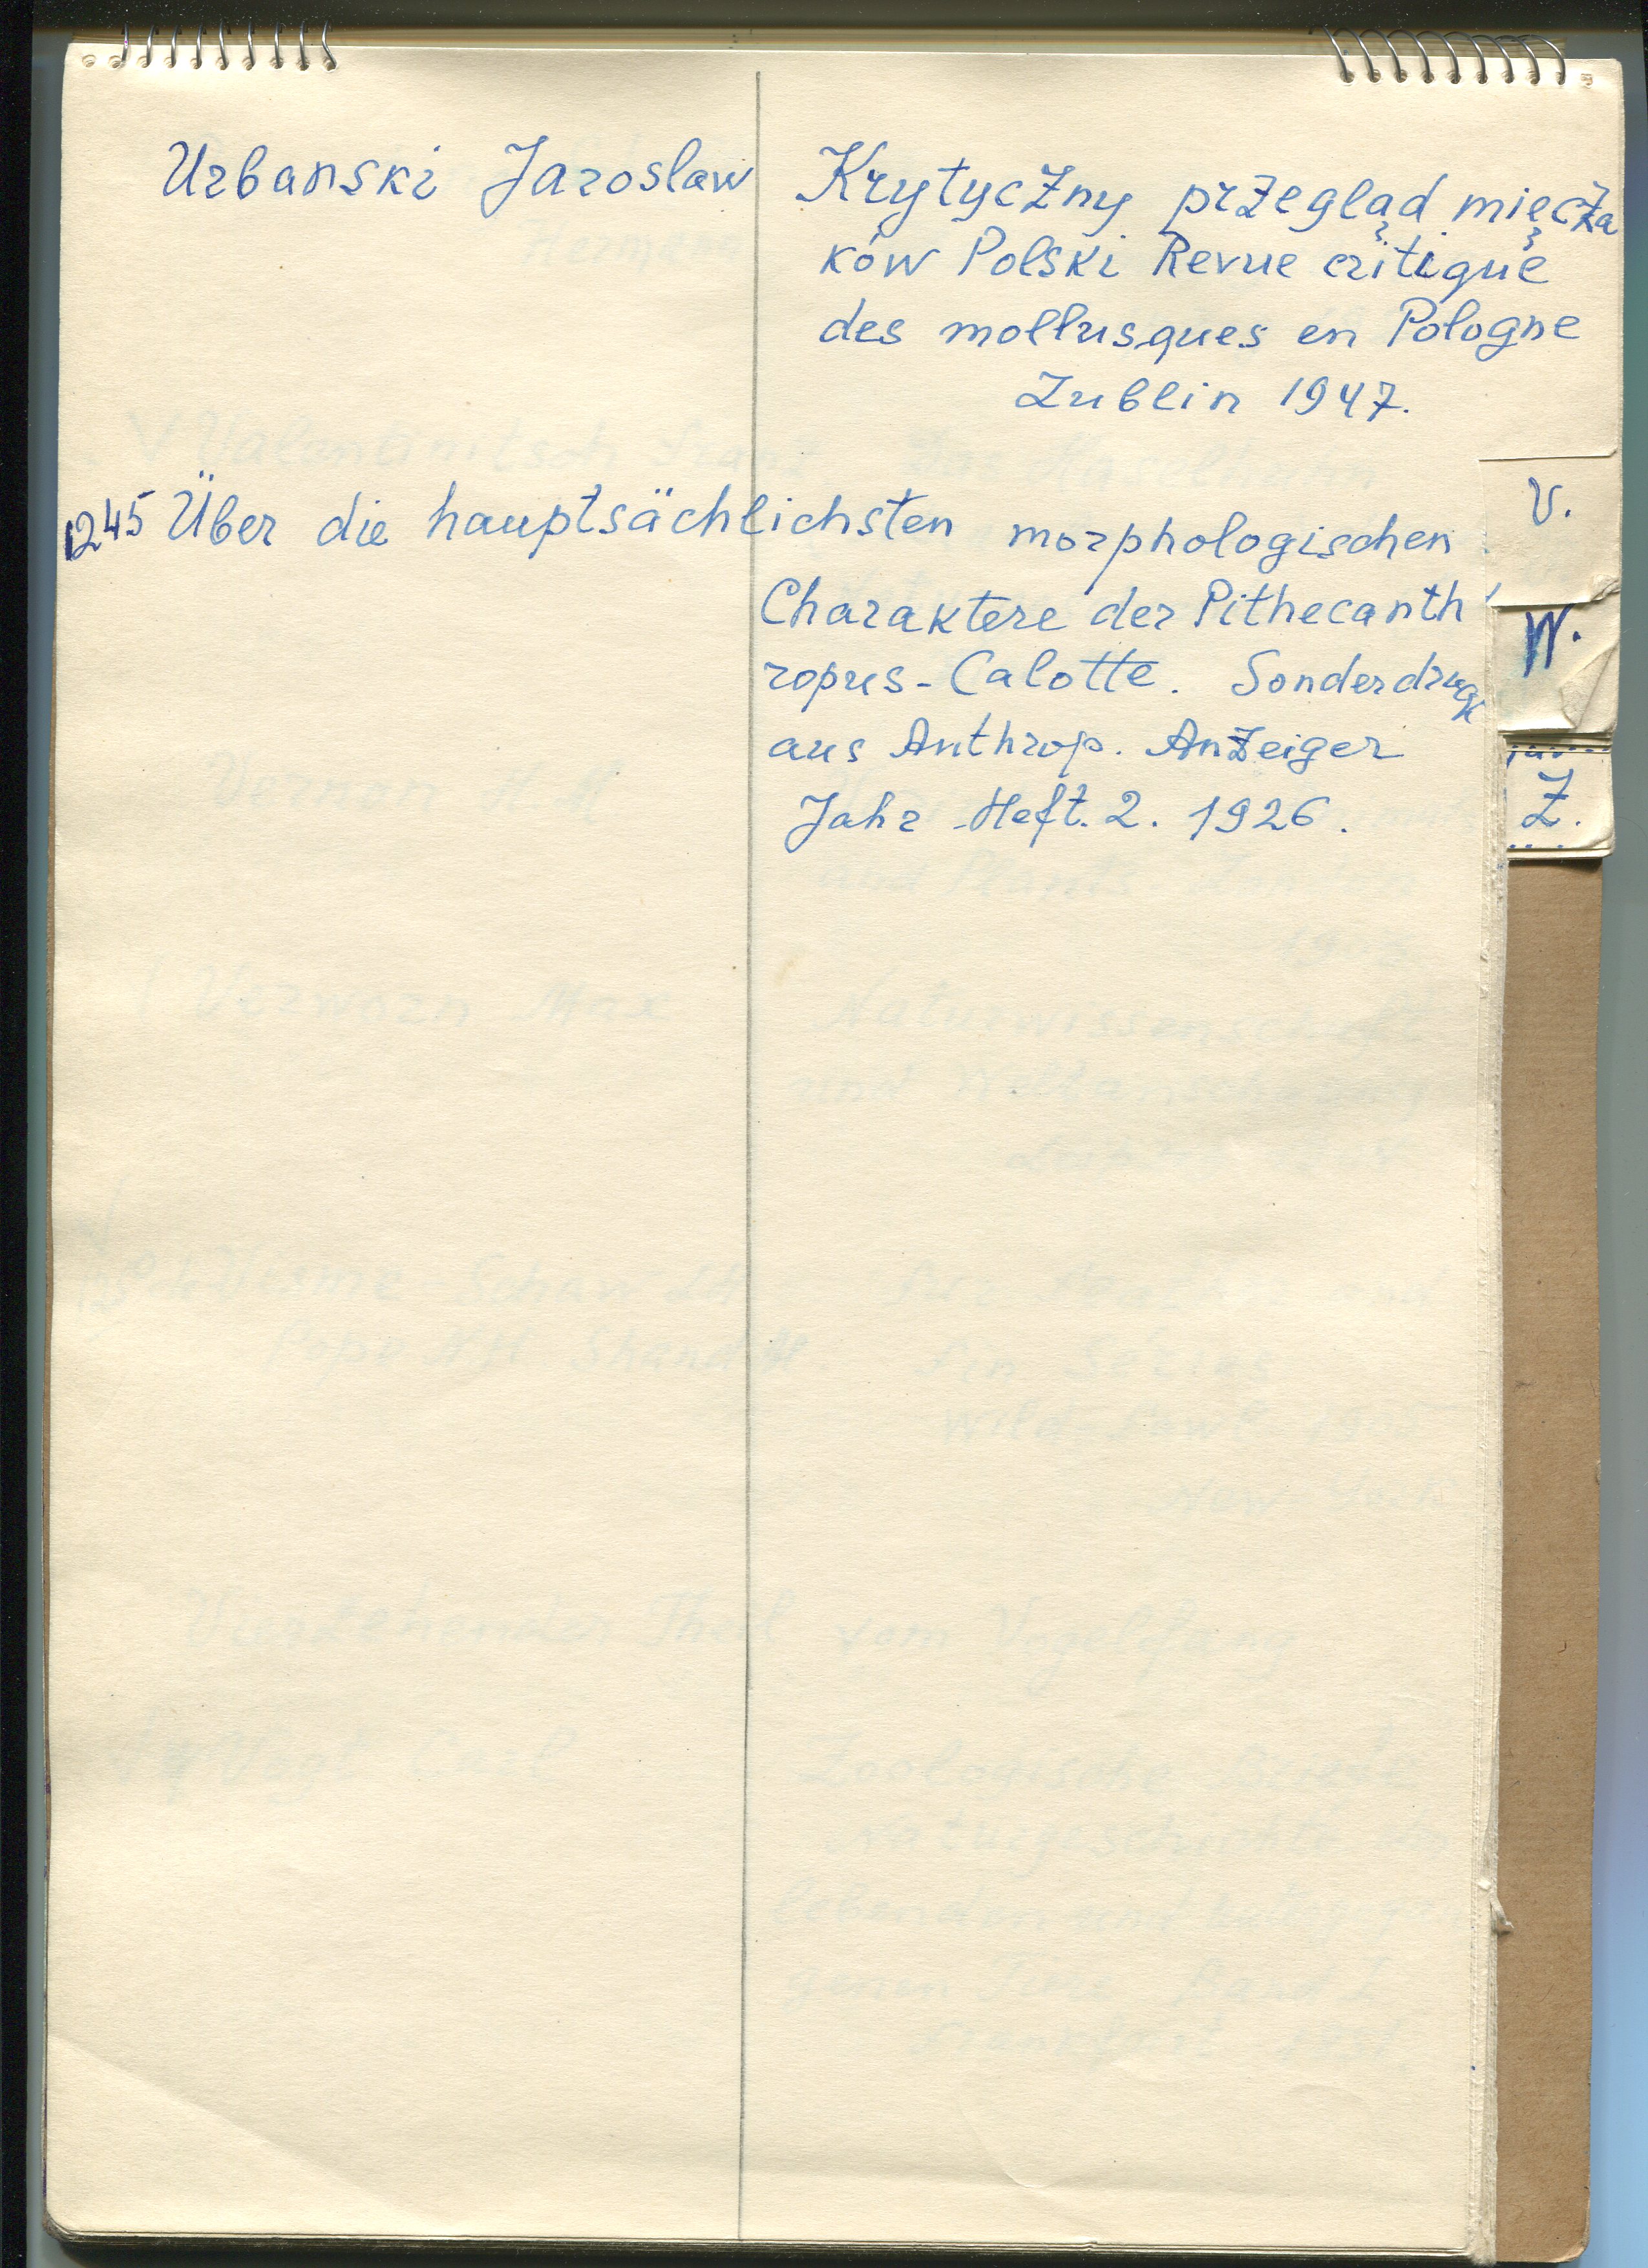 Urbanski Jaroslaw Krytyczny przegląd mięcza
ków Polski Revue critique
des mollusques en Pologne
Lublin 1947.
1245 Über die hauptsächlichsten morphologischen
Charaktere der Pithecanth
ropus-Calotte. Sonderdruck
aus Anthrop. Anzeiger
Jahr Heft. 2. 1926.
V.
W.
Z.